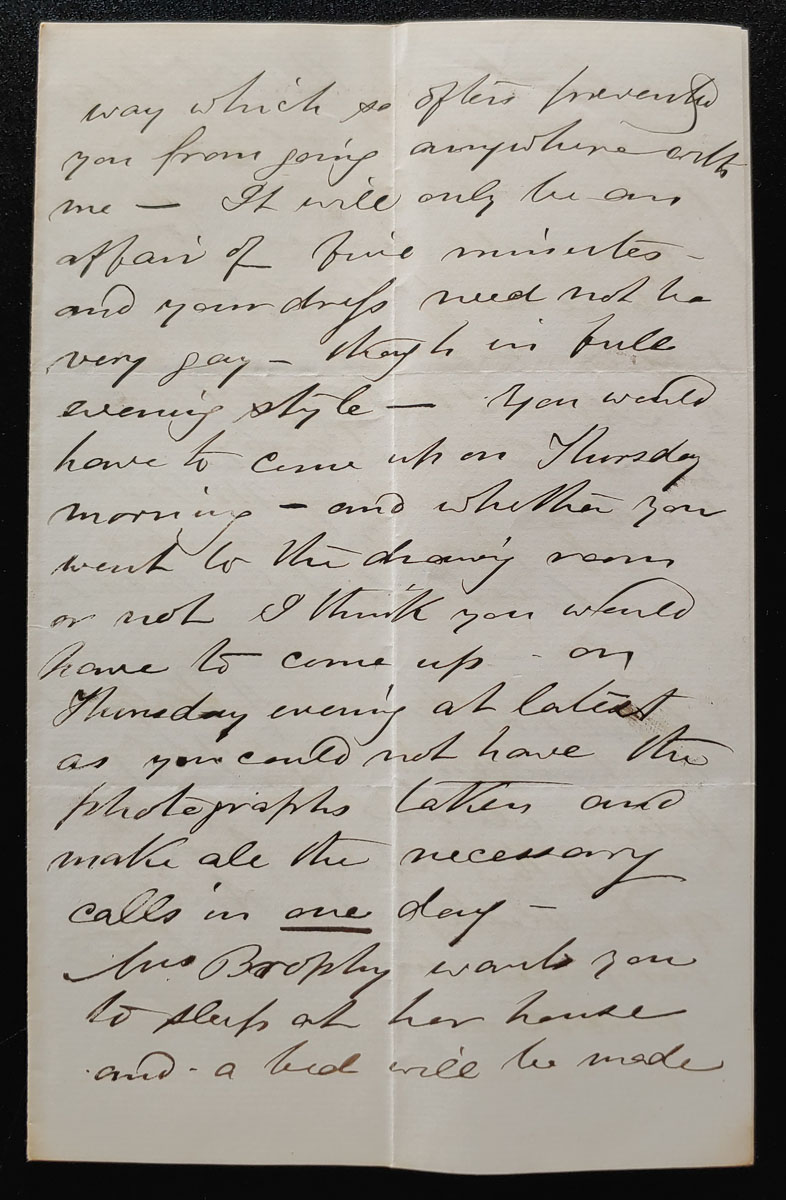 way which so often prevented
you from going anywhere with
me — It will only be an
affair of five minutes -
and your dress need not be
very gay — though in full
evening style — You would
have to come up on Thursday
morning - and whether you
went to the drawing room
or not I think you would
have to come up - on
Thursday evening at latest
as you could not have the
photographs taken and
make all the necessary
calls in one day -
Mrs Brophy wants you
to sleep at her house
and - a bed will be made